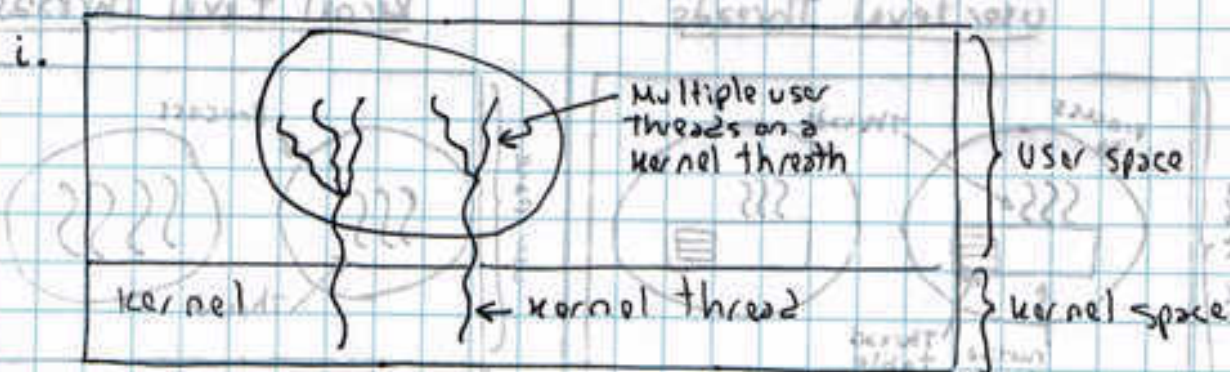 i.
Multiple user
threads on a
kernel threath
User space
kernel
kernel thread
kernel space